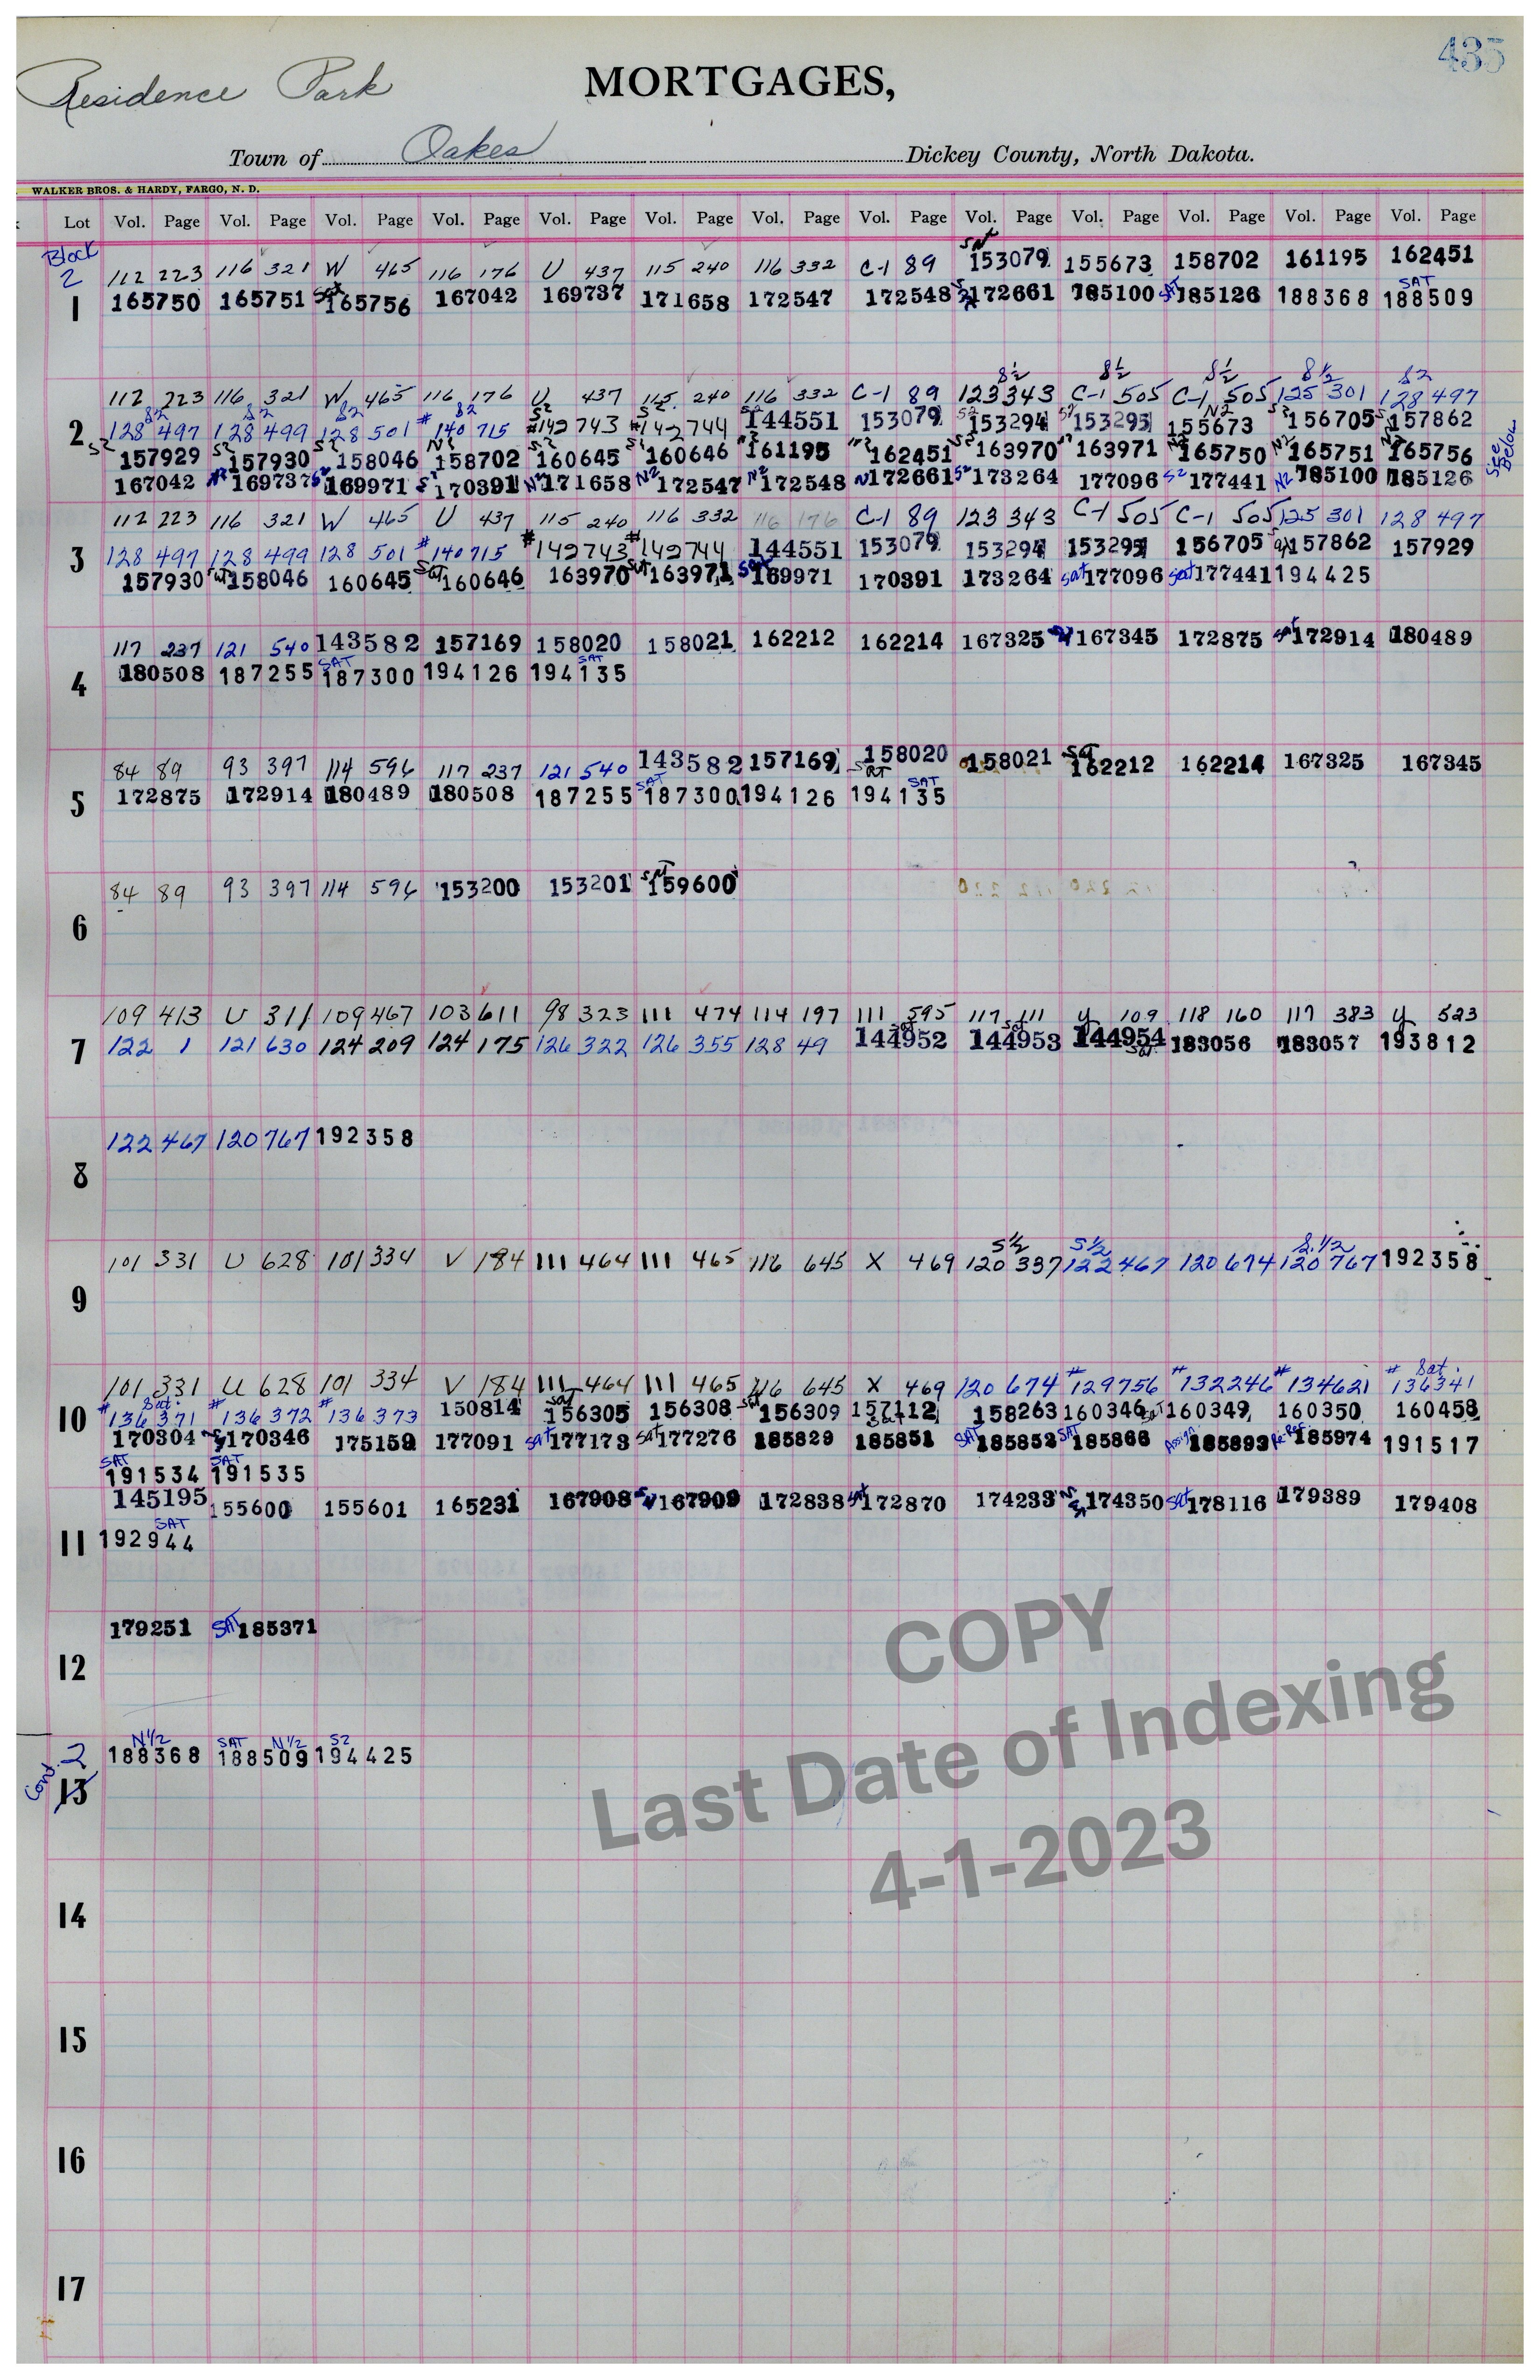 435
Residence Park
MORTGAGES,
Town of Oakes Dickey County, North Dakota.
WALKER BROS. & HARDY, FARGO, N. D.
Lot Vol. Page Vol. Page Vol. Page Vol. Page Vol. Page Vol. Page Vol. Page Vol. Page Vol. Page Vol. Page Vol. Page Vol. Page Vol. Page
Block 2
112 223 116 321 W 465 116 176 U 437 115 240 116 332 C-1 89 Sat 153079 155673 158702 161195 162451
1 165750 165751 Sat 165756 167042 169737 171658 172547 172548 172661 185100 SAT 185126 188368 SAT 188509
S½ S½ S½ S½ S2
112 223 116 321 W 465 116 176 U 437 115 240 116 332 C-1 89 123 343 C-1 505 C-1 505 125 301 128 497
S2 S2 S2 S2 S2 S2 S2 S2 S2 N2 S2 S2
2 128 497 128 499 128 501 # 140 715 #142743 #142744 144551 153079 153294 153295 155673 156705 157862
S2 157929 S2 157930 S2 158046 N2 158702 S2 160645 S2 160646 N2 161195 N2 162451 S2 163970 163971 N2 165750 N2 165751 N2 165756
See Below
167042 N2 169737 S2 169971 S2 170391 N2 171658 N2 172547 N2 172548 N 172661 S2 173264 177096 S2 177441 N2 185100 185126
112 223 116 321 W 465 U 437 115 240 116 332 116 176 C-1 89 123 343 C-1 505 C-1 505 125 301 128 497
3 128 497 128 499 128 501 # 140715 #142743 #142744 144551 153079 153294 153295 156705 157862 157929
157930 Sat 158046 160645 Sat 160646 163970 Sat 163971 169971 170391 173264 Sat 177096 Sat 177441 194425
117 237 121 540 143582 157169 158020 158021 162212 162214 167325 167345 172875 172914 180489
4 180508 187255 SAT 187300 194126 SAT 194135
84 89 93 397 114 596 117 237 121 540 143582 157169 158020 158021 Sat 162212 162214 167325 167345
5 172875 172914 180489 180508 187255 SAT 187300 194126 SAT 194135
84 89 93 397 114 596 153200 153201 Sat 159600
6
109 413 U 311 109 467 103 611 98 323 111 474 114 197 111 595 117 111 Y 109 118 160 117 383 Y 523
7 122 1 121 630 124 209 124 175 126 322 126 355 128 49 Sat 144952 Sat 144953 144954 Sat 183056 183057 193812
122 467 120 767 192358
8
S½ S½ S.1/2
101 331 U 628 101 334 V 184 111 464 111 465 116 645 X 469 120 337 122 467 120 674 120 767 192358
9
101 331 U 628 101 334 V 184 111 464 111 465 116 645 X 469 120 674 # 129756 # 132246 # 134621 # Sat. 136341
10 # Sat. 136371 # 136372 # 136373 150814 Sat 156305 156308 156309 157112 158263 160346 Sat 160349 160350 160458
170304 170346 175159 177091 SAT 177173 SAT 177276 185829 185851 SAT 185852 SAT 185866 Assign 185893 Re-Rec 185974 191517
SAT 191534 SAT 191535
145195 155600 155601 165231 167908 167909 172838 Sat 172870 174233 174350 Sat 178116 179389 179408
11 SAT 192944
179251 SAT 185371
12
N1/2 188368 SAT N1/2 188509 S2 194425
Cont. 2
13
14
15
16
17
COPY
Last Date of Indexing
4-1-2023